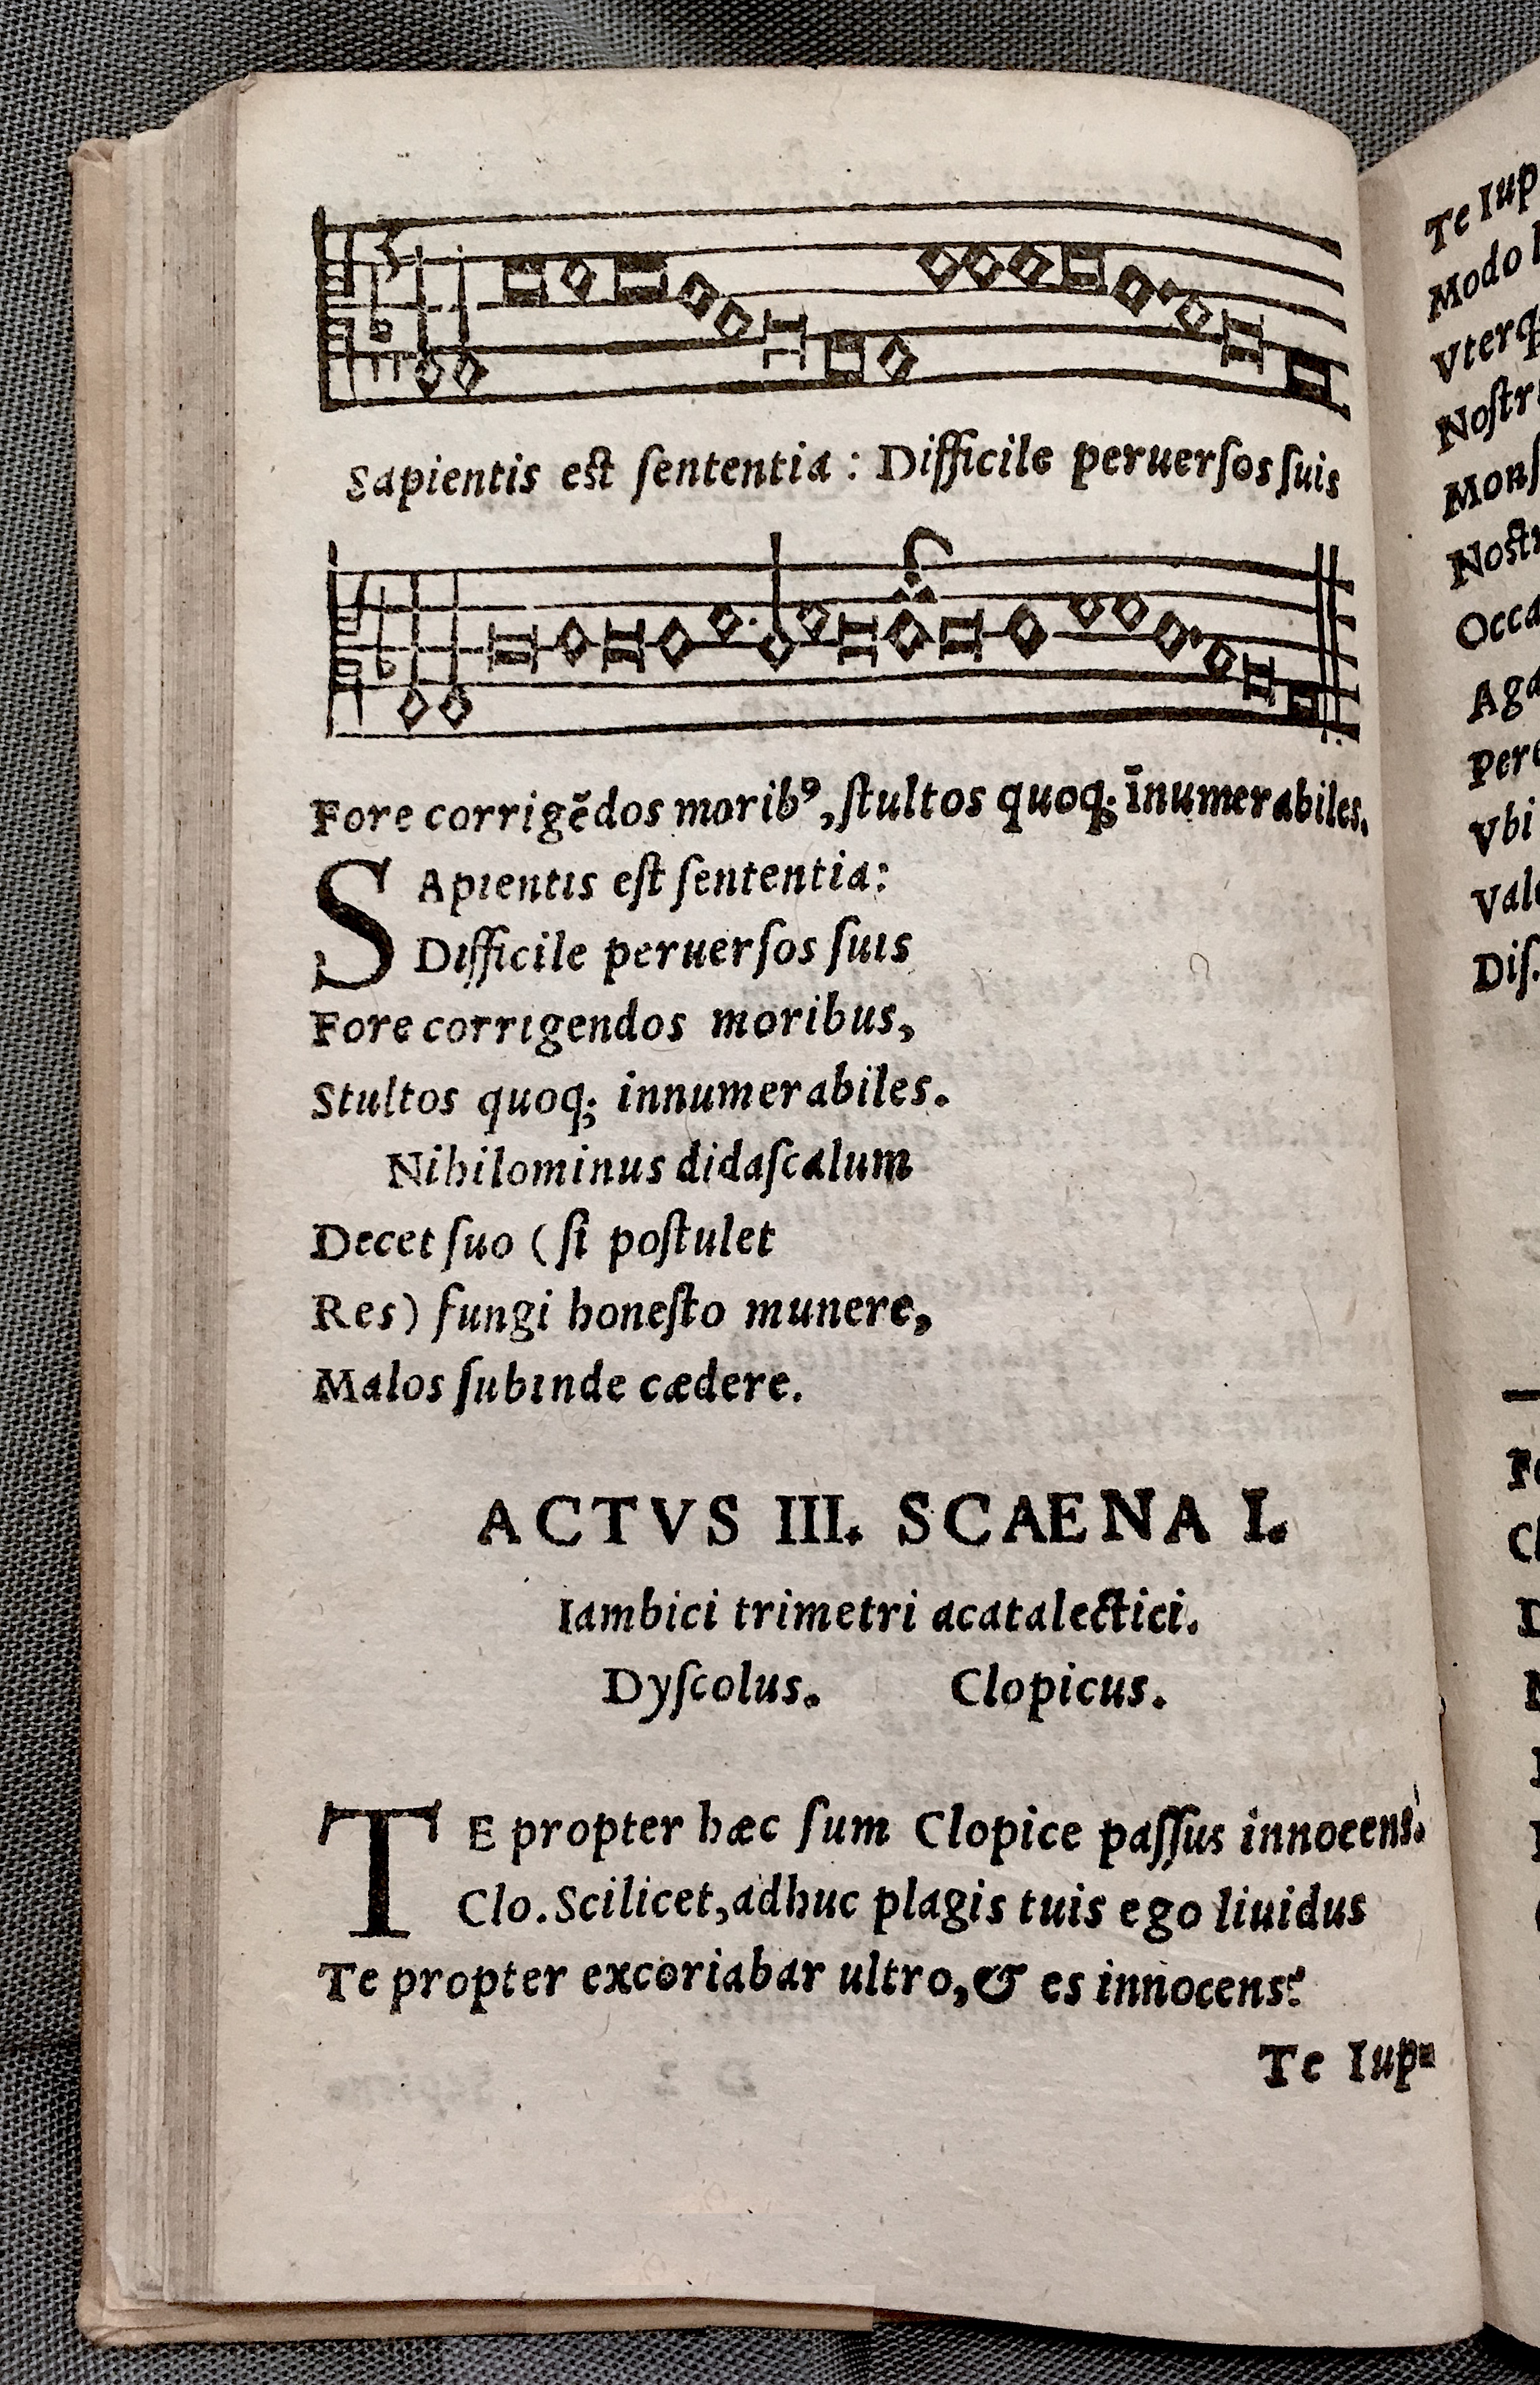 3
Sapientis est ſententia : Difficile peruerſos ſuis
Fore corrigēdos moribꝰ, ſtultos quoq; īnumerabiles.
SApientis eſt ſententia:
Difficile peruerſos ſuis
Fore corrigendos moribus,
Stultos quoq; innumerabiles.
Nihilominus didaſcalum
Decet ſuo (ſi poſtulet
Res) fungi honeſto munere,
Malos ſubinde cædere.
ACTVS III. SCAENA I.
Iambici trimetri acatalectici.
Dyſcolus. Clopicus.
TE propter hæc ſum Clopice paſſus innocens.
Clo. Scilicet, adhuc plagis tuis ego liuidus
Te propter excoriabar ultro, & es innocens?
Te Iup-
Te Iup
Modo
Vterq
Noſtr
Monſ
Noſtr
Occa
Aga
Pere
Vbi
Vale
Diſ.